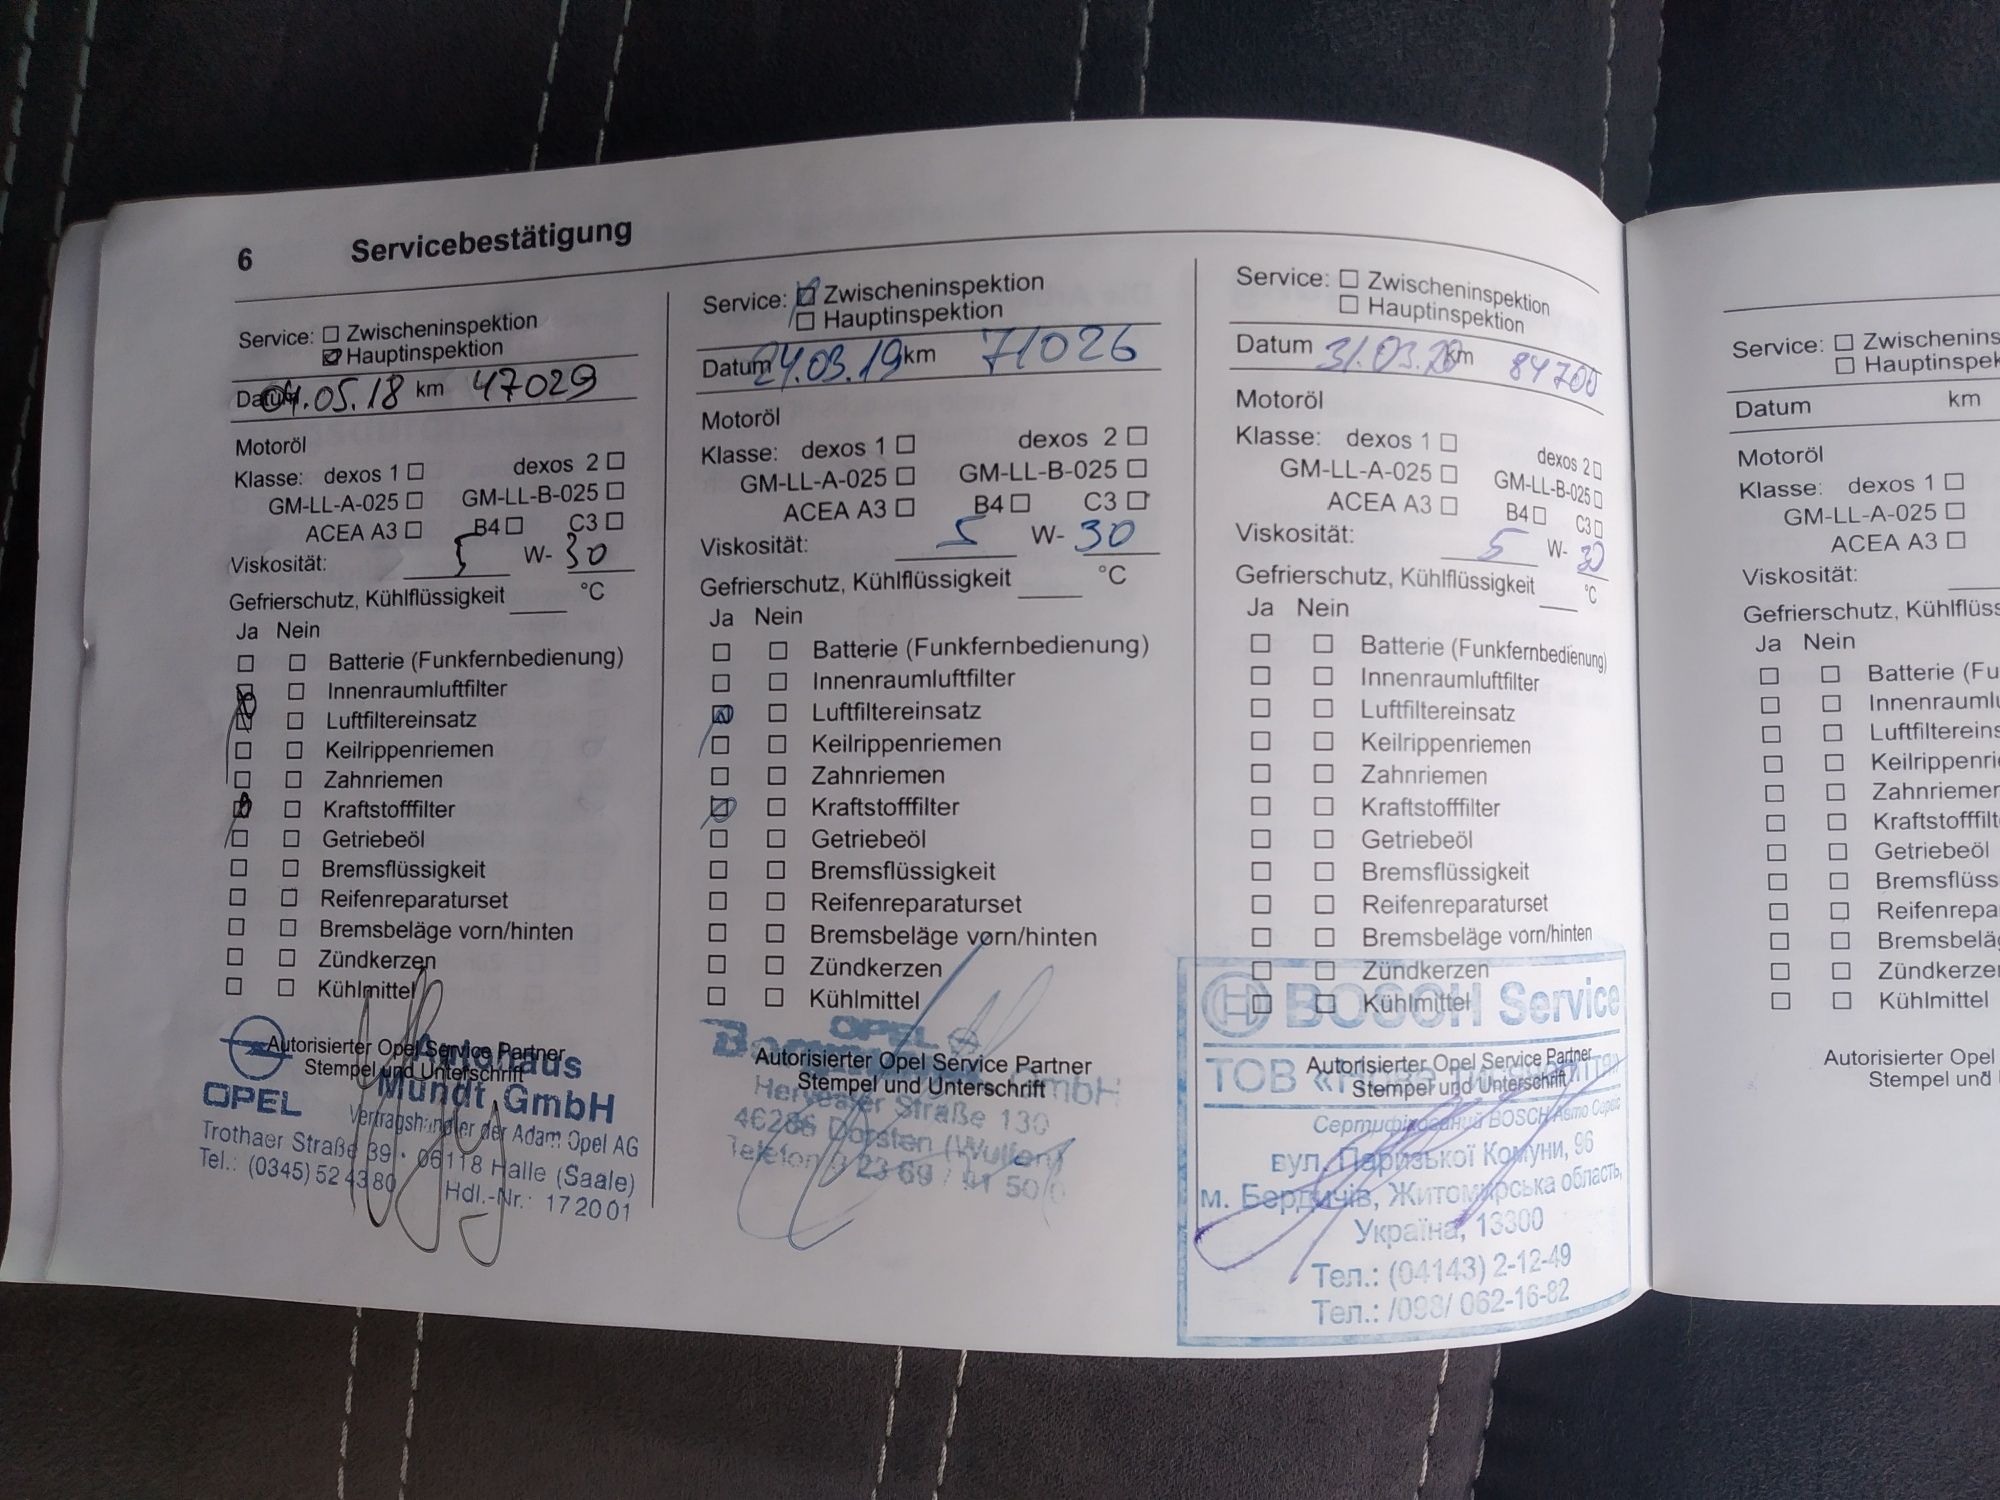 6 Servicebestätigung
Service: Zwischeninspektion
Hauptinspektion
Datum 04.05.18 km 47029
Motoröl
Klasse: dexos 1 dexos 2
GM-LL-A-025 GM-LL-B-025
ACEA A3 B4 C3
Viskosität: 5 W- 30
Gefrierschutz, Kühlflüssigkeit °C
Ja Nein
Batterie (Funkfernbedienung)
Innenraumluftfilter
Luftfiltereinsatz
Keilrippenriemen
Zahnriemen
Kraftstofffilter
Getriebeöl
Bremsflüssigkeit
Reifenreparaturset
Bremsbeläge vorn/hinten
Zündkerzen
Kühlmittel
Autorisierter Opel Service Partner
Stempel und Unterschrift
Autohaus
Mundt GmbH
OPEL
Vertragshändler der Adam Opel AG
Trothaer Straße 39 · 06118 Halle (Saale)
Tel.: (0345) 52 43 80 Hdl.-Nr.: 172001
Service: Zwischeninspektion
Hauptinspektion
Datum 24.03.19 km 71026
Motoröl
Klasse: dexos 1 dexos 2
GM-LL-A-025 GM-LL-B-025
ACEA A3 B4 C3
Viskosität: 5 W- 30
Gefrierschutz, Kühlflüssigkeit °C
Ja Nein
Batterie (Funkfernbedienung)
Innenraumluftfilter
Luftfiltereinsatz
Keilrippenriemen
Zahnriemen
Kraftstofffilter
Getriebeöl
Bremsflüssigkeit
Reifenreparaturset
Bremsbeläge vorn/hinten
Zündkerzen
Kühlmittel
OPEL
Autorisierter Opel Service Partner
GmbH
Stempel und Unterschrift
Hervester Straße 130
46286 Dorsten (Wulfen)
Telefon 0 23 69 / 91 50 0
Service: Zwischeninspektion
Hauptinspektion
Datum 31.03.20 km 84700
Motoröl
Klasse: dexos 1 dexos 2
GM-LL-A-025 GM-LL-B-025
ACEA A3 B4 C3
Viskosität: 5 W- 30
Gefrierschutz, Kühlflüssigkeit °C
Ja Nein
Batterie (Funkfernbedienung)
Innenraumluftfilter
Luftfiltereinsatz
Keilrippenriemen
Zahnriemen
Kraftstofffilter
Getriebeöl
Bremsflüssigkeit
Reifenreparaturset
Bremsbeläge vorn/hinten
Zündkerzen
Kühlmittel
BOSCH Service
Autorisierter Opel Service Partner
Stempel und Unterschrift
ТОВ
Сертифікований BOSCH Авто Сервіс
вул. Паризької Комуни, 96
м. Бердичів, Житомирська область,
Україна, 13300
Тел.: (04143) 2-12-49
Тел.: /098/ 062-16-82
Service: Zwischenins
Hauptinspek
Datum km
Motoröl
Klasse: dexos 1
GM-LL-A-025
ACEA A3
Viskosität:
Gefrierschutz, Kühlflüss
Ja Nein
Batterie (Fu
Innenraumlu
Luftfiltereins
Keilrippenrie
Zahnriemen
Kraftstofffilt
Getriebeöl
Bremsflüss
Reifenrepa
Bremsbeläg
Zündkerzen
Kühlmittel
Autorisierter Opel
Stempel und